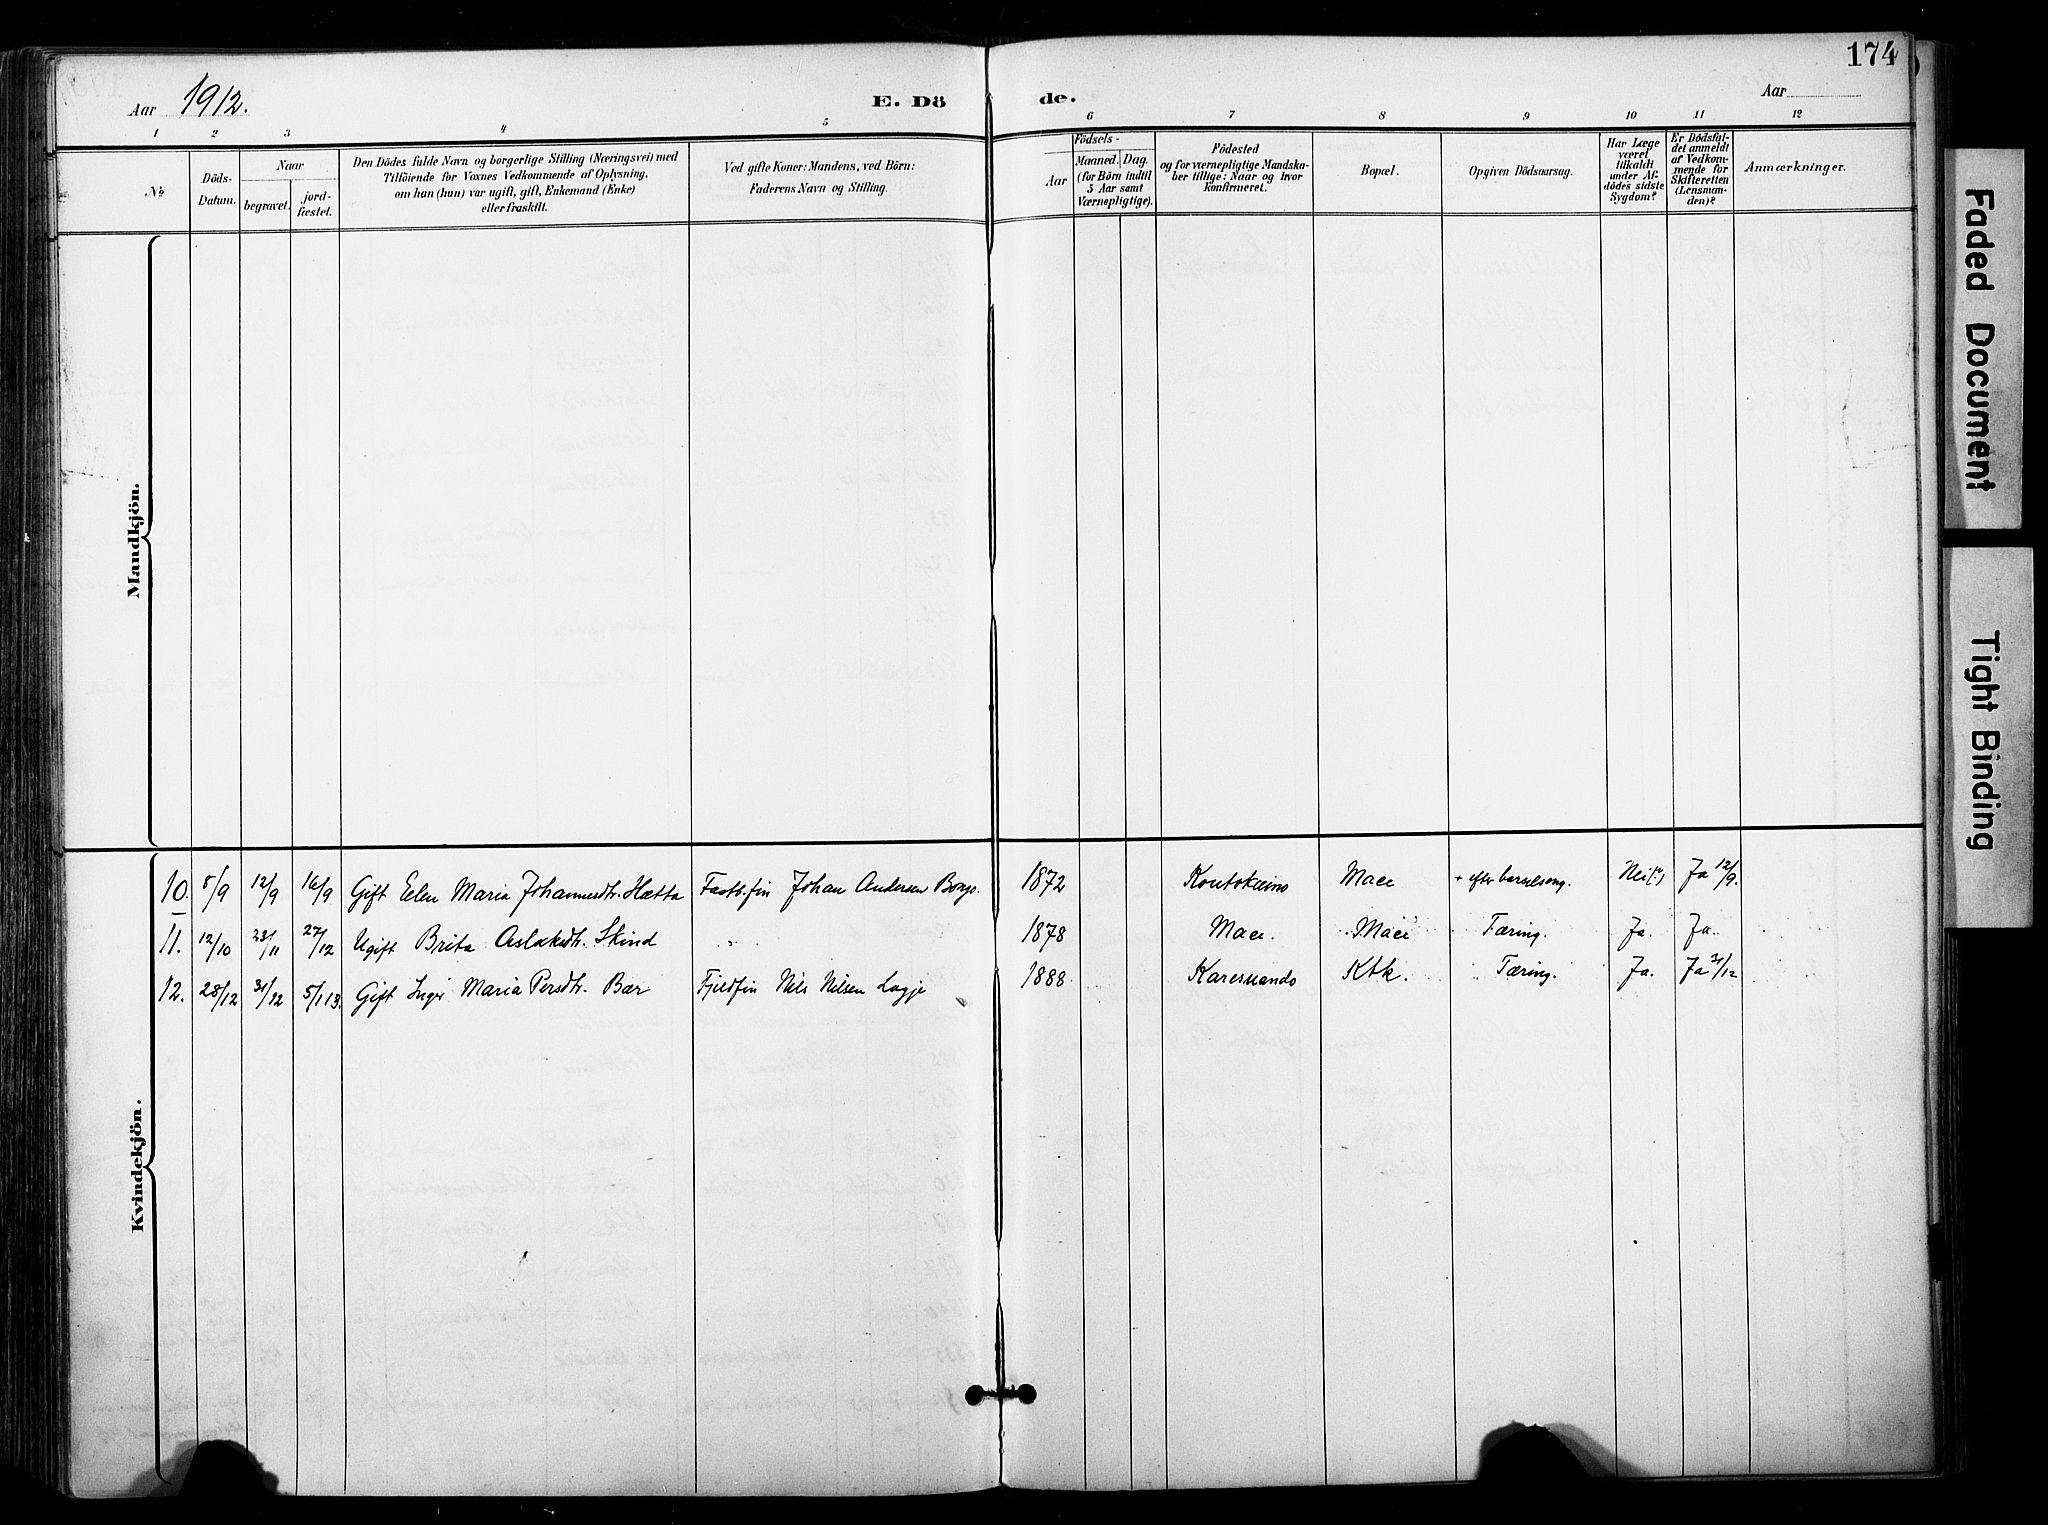 174
Aar 1912. E. Dö de. Aar
1 2 3 4 5 6 7 8 9 10 11 12
No.
Döds-Datum.
Naar
begravet.
jord-fæstet.
Den Dödes fulde Navn og borgerlige Stilling (Næringsvei) med
Tilföiende for Voxnes Vedkommende af Oplysning,
om han (hun) var ugift, gift, Enkemand (Enke)
eller fraskilt.
Ved gifte Koner: Mandens, ved Börn:
Faderens Navn og Stilling.
Födsels-
Aar
Maaned. Dag.
(for Börn indtil
5 Aar samt
Værnepligtige).
Födested
og for værnepligtige Mandska-
ber tillige: Naar og hvor
konfirmeret.
Bopæl.
Opgiven Dödsaarsag.
Har Læge
været
tilkaldt
under Af-
dödes sidste
Sygdom?
Er Dödsfal-
det anmeldt
af Vedkom-
mende for
Skifteretten
(Lensman-
den)?
Anmærkninger.
Mandkjön.
Kvindekjön.
10. 5/9 12/9 16/9 Gift Elen Maria Johannesdtr. Hætta Fastb.fin Johan Andersen Bongo. 1872 Koutokeino Maci + efter barselseng. Nei(!) Ja 12/9.
11. 12/10 23/11 27/12 Ugift Brita Aslaksdtr. Skind " 1878 Maci. Maci Tæring. Ja. Ja.
12. 28/12 31/12 5/1 13. Gift Inger Maria Persdtr. Bær Fjeldfin Nils Nilsen Logje 1888 Karesuando Ktk. Tæring. Ja. Ja 31/12
Faded Document
Tight Binding